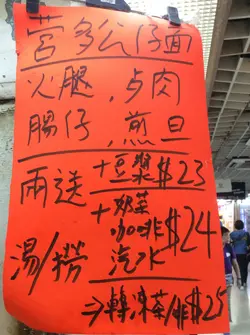 营多公仔面
火腿,卢肉
腸仔,煎旦
兩送
+豆漿$23
+奶茶
咖啡$24
汽水
湯/撈
→轉凍茶/啡$25